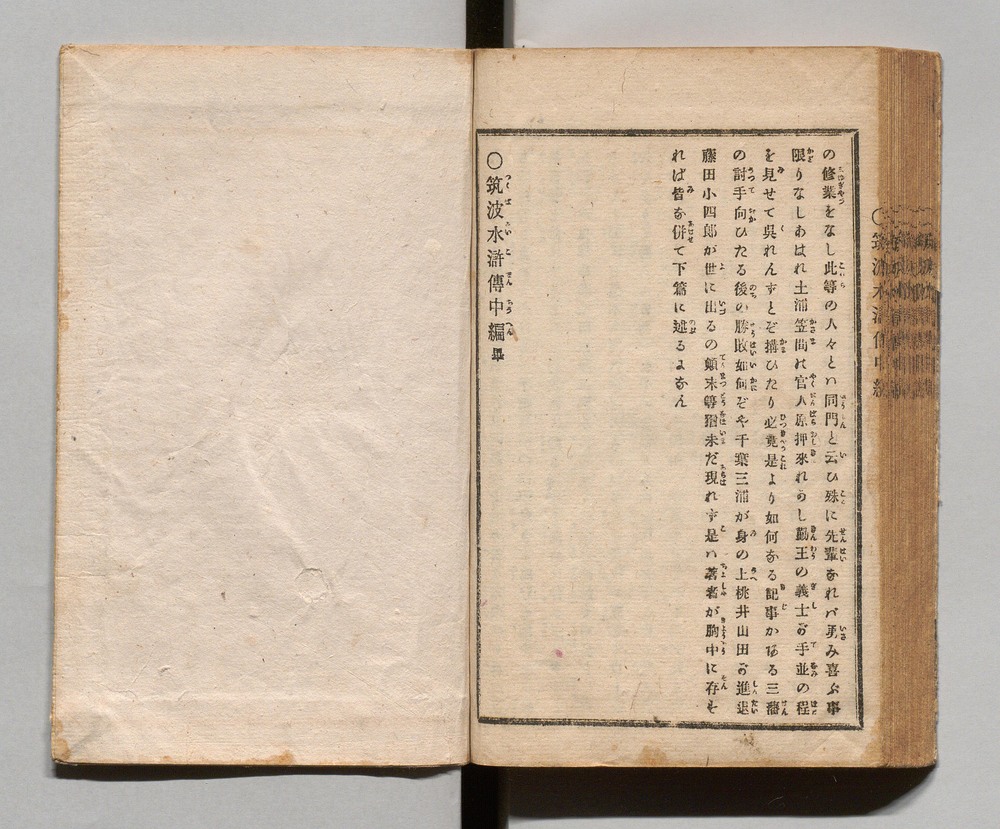 の修業をなし此等の人々とハ同門と云ひ殊に先輩なれバ勇み喜ぶ事
限りなしあはれ土浦笠間の官人原押来れかし勤王の義士が手並の程
を見せて呉れんずとぞ搆ひたり必竟是より如何なる記事かある三藩
の討手向ひたる後の勝敗如何ぞや千葉三浦が身の上桃井山田が進退
藤田小四郎が世に出るの顛末等猶未だ現れず是ハ著者が胸中に存せ
れば皆な併て下篇に述るよなん
〇筑波水滸傳中編畢
〇筑波水滸傳中編